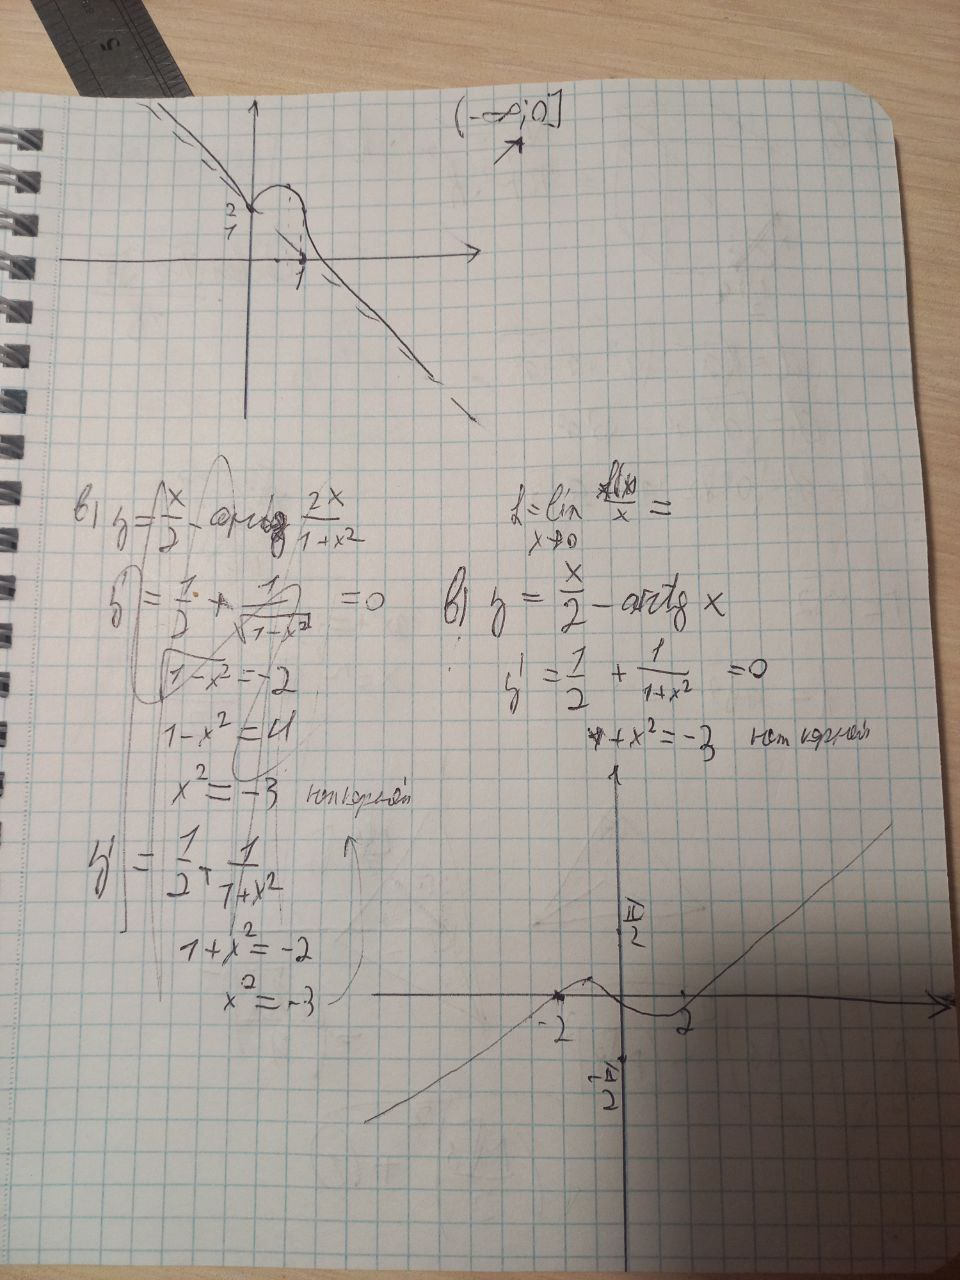 (-∞;0]
2
1
1
в) y = x/2 - arctg 2x/(1+x²)
y' = 1/2 + 1/√(1-x²) = 0
√(1-x²) = -2
1-x² = 4
x² = -3 нет корней
y' = 1/2 + 1/(1+x²)
1+x² = -2
x² = -3
L = lim x→0 f(x)/x =
в) y = x/2 - arctg x
y' = 1/2 + 1/(1+x²) = 0
+x² = -3 нет корней
π/2
-2
2
-π/2
5